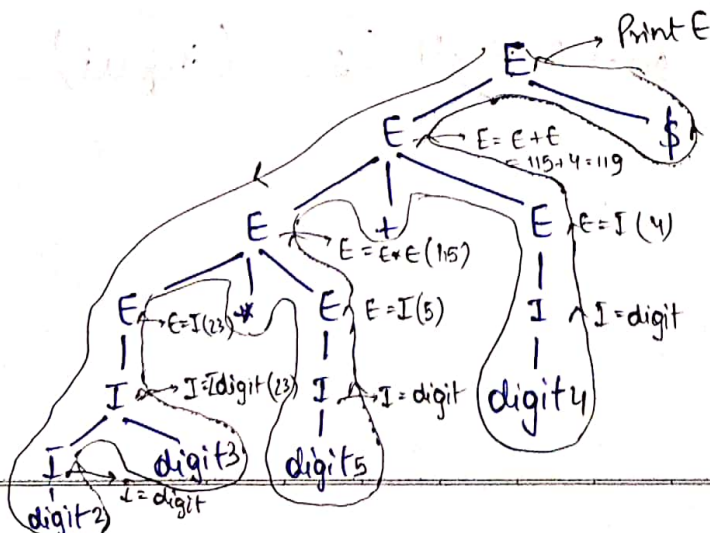 Print E
E
E
E = E + E
= 115 + 4 = 119
$
E
+
E
E = I (4)
E = E * E (115)
E
E = I (23)
*
E
E = I (5)
I
I = digit
I
I = Idigit (23)
I
I = digit
digit 4
I
digit 3
digit 5
I = digit
digit 2